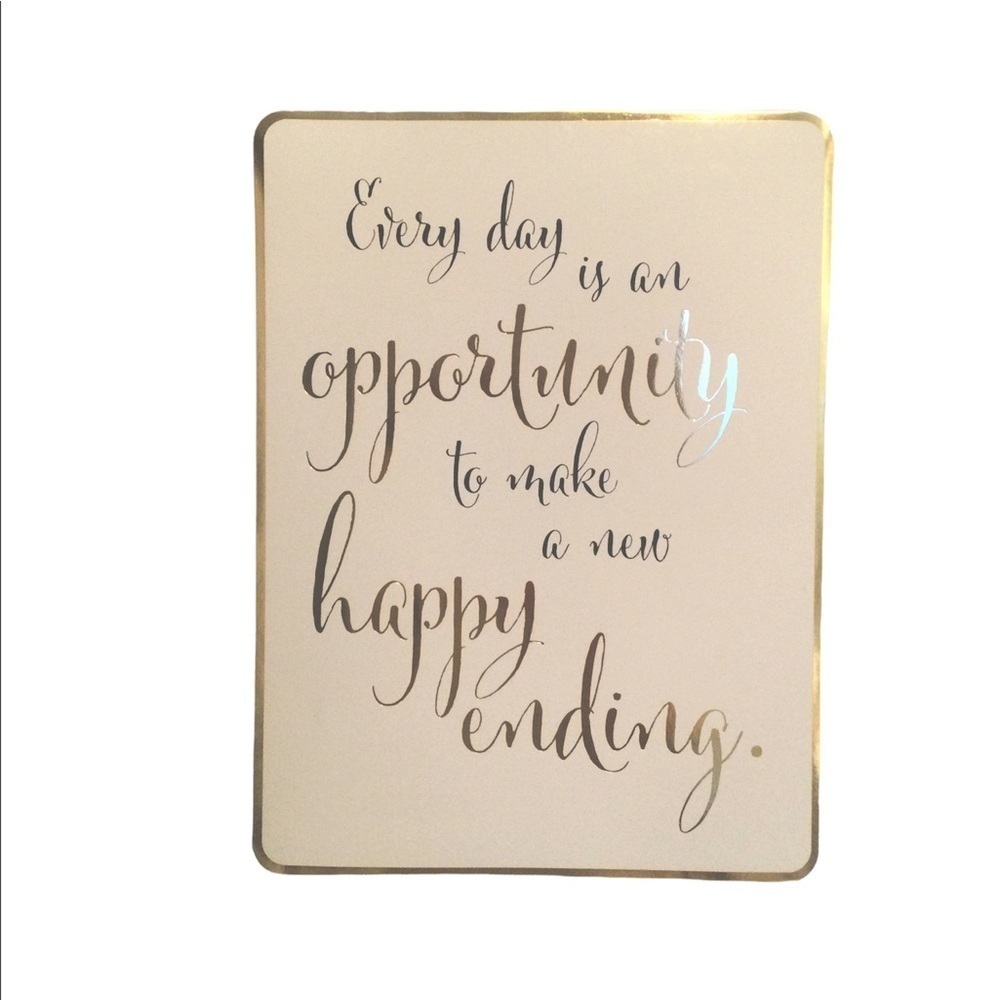 Every day
is an
opportunity
to make
a new
happy
ending.